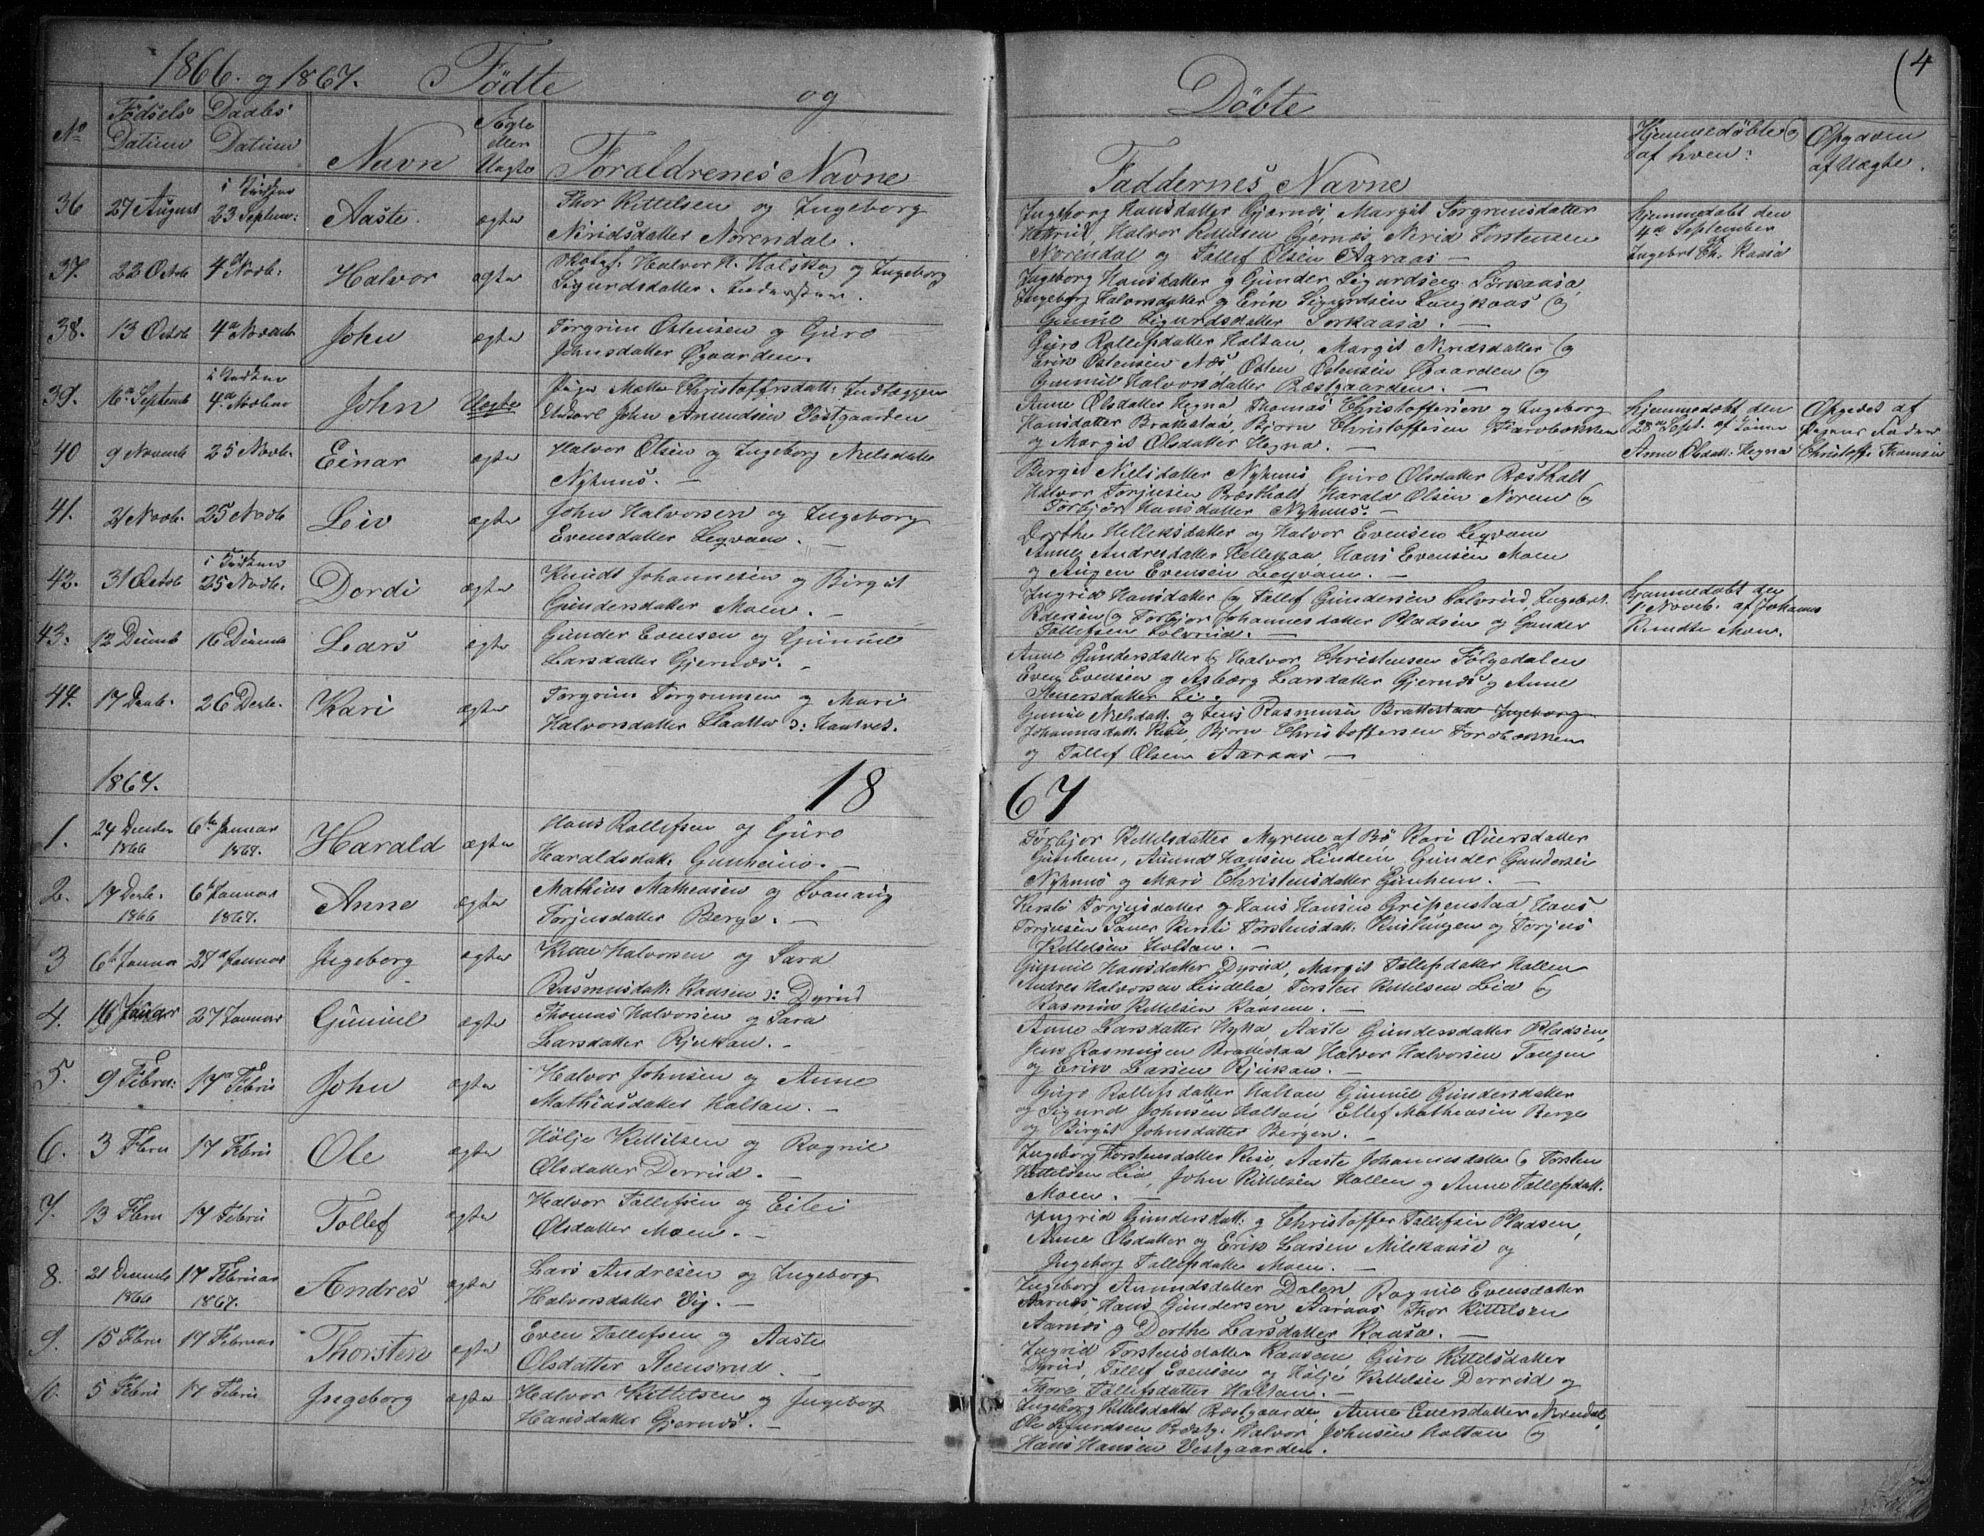 1866. og 1867. Fødte og Døbte (4
No Fødsels Datum Daabs Datum Navn Ægte eller Uægte Foraldrenes Navne Faddernes Navne Hjemmedøbte og af hvem: Opgaven af Uægte.
36 27 August i Kirken 23 Septem: Aaste. ægte Thor Kittelsen og Ingeborg
Niridsdatter Norendal.
Ingeborg Hansdatter Gjernes, Margit Torgrimsdatter
Halvor Kittelsen Gjernes, Nerid Torstensen
Norendal og Tollef Olsen Aaraas —
Hjemmedøbt den
4de September
Ingebret Raasa
37. 22 Octob 4de Novb: Halvor ægte Halvor H. Halskog og Ingeborg
Sigurdsdatter.
Ingeborg Hansdatter og Gunder Sigurdsen Torkaasa,
Ingeborg Halvorsdatter og Erik Sigurdsen Langkaas og
Gunnil Sigurdsdatter Torkaasa. —
38. 13 Octob 4de Novemb John ægte Torgrim Ostensen og Guro
Johnsdatter Øgaarden.
Guro Rollefsdatter Holtan, Margit Niridsdatter og
Erik Ostensen Næs, Osten Ostensen Øgaarden og
Gunnil Halvorsdatter Bøstgaarden. —
39. 16de Septemb i Kirken 4de John Uægte Pige Mette Christoffersdatt:
John Amundsen Vestgaarden
Anne Olsdatter Hegna Thomas Christoffersen og Ingeborg
Hansdatter Brattestaa, Bjørn Christoffersen
og Margit Olsdatter Hegna. —
Hjemmedøbt den
28de Sept. af
Anne Olsdatt: Hegna
Opgivet af
Pigens Fader
Christoff: Thomsen
40 9 Novemb 25 Novb. Einar ægte Halvor Olsen og Ingeborg Nielsdatter
Nyhuus. —
Berget Nielsdatter Nyhuus, Guro Olsdatter Bøstholt
Halvor Torjusen Bøstholt, Harald Olsen Norem og
Torbjør Hansdatter Nyhuus. —
41. 21 Novb. 25 Novb Leiv ægte John Halvorsen og Ingeborg
Evensdatter Legvam. —
Dorthe Helleksdatter og Halvor Evensen Legvam
Anne Andresdatter Hans Evensen Moen
og Augen Evensen Legvam. —
42. 31 Octob i Kirken 25 Novb. Dordi ægte Knudt Johannesen og Birgit
Gundersdatter Moen. —
Ingrid Hansdatter og Tollef Gundersen Solvrud, Ingebret
Pedersen og Torbjør Johannesdatter Pladsen og Gunder
Tollefsen Solvrud. —
Hjemmedøbt den
1 Novb. af Johannes
Knudts Moen.
43. 12 Decemb 16 Decemb Lars ægte Gunder Evensen og Gunnil
Larsdatter Gjernæs. —
Anne Gundersdatter og Halvor Christensen Følgedalen
Even Evensen og Asbørg Larsdatter Gjernæs og Anne
Steenersdatter Lie.
44. 17 Decb. 26 Decb. Kari ægte Torgrim Torgrimsen og Mari
Halvorsdatter Slaatta ɔ: Haatvet.
Gunnil Nielsdatt: og Jens Rasmusen Brattestaa Ingeborg
Johannesdatt. Riise, Bjørn Christoffersen
og Tollef Olsen Aaraas —
1867. 18 67
1. 24 Decbr 1866 6te Januar 1867. Harald ægte Hans Rollefsen og Guro
Haraldsdatt: Gunheim. —
Torbjør Kittelsdatter Myrene af Bø Kari
Gunhem, Amund Hansen Lindein, Gunder Gundersen
Nyhuus og Mari Christensdatter Gunhem. —
2. 17 Decb. 1866 6te Januar 1867. Anne ægte Mathias Matheasen og Svanaug
Torjusdatter Berge. —
Kersti Torjusdatter og Hans Hansen Gripenstaa, Hans
Torjusen Saner Kirsti Torstensdatt: og Torjus
Kittelsen Holtan. —
3 6te Januar 27de Januar Ingeborg ægte Halvorsen og Sara
Rasmusdatt: Raasen ɔ: Dyrud
Gunnil Hansdatter Dyrud, Margit Tollefsdatter Hallen
Andres Halvorsen Lindelia, Torsten Kittelsen Lia og
Rasmus Kittelsen Raasen. —
4. 16 Januar 27 Januar Gunnil ægte Thomas Halvorsen og Sara
Larsdatter Rjukan. —
Anne Larsdatter Aaste Gundersdatter Pladsen,
Jens Rasmusen Brattestaa Halvor Halvorsen Tangen
og Erik Larsen Rjukan. —
5. 9 Febru: 17de Febru John ægte Halvor Johnsen og Anne
Mathiasdatter Holtan. —
Guro Rollefsdatter Holtan Gunnil Gundersdatter
og Sigurd Johnsen Holtan Ellef Matheasen Berge
og Birgit Johnsdatter Bergen. —
6. 3 Fbru 17 Febru Ole ægte Hølje Kittilsen og Ragnil
Olsdatter Dorrud. —
Ingeborg Torstensdatter Riise, Aaste Johannesdatter og Torsten
Kittelsen Lia, John Kittelsen Hallen og Anne Tollefsdatt.
Moen. —
7. 13 Fbru 17 Febru Tollef ægte Halvor Tollefsen og Eilei
Olsdatter Moen. —
Ingrid Gundersdatt: og Christoffer Tollefsen Pladsen,
Anne Olsdatter og Erik Larsen Milekaase og
Ingeborg Tollefsdatter Moen. —
8. 21 Decemb 1866 17 Februar 1867. Andres ægte Lars Andresen og Ingeborg
Halvorsdatter Vig. —
Ingeborg Amundsdatter Dalen Ragnil Evensdatter
Aarnes Hans Gundersen Aaraas Thor Kittelsen
Aarnes og Dorthe Larsdatter Raasa. —
9. 15 Fbru 17 Februar Thorsten ægte Even Tollefsen og Aaste
Olsdatter Steensrud. —
Ingrid Torstensdatter Raasen Guro Kittelsdatter
Dyrud, Tollef Evensen og Hølje Kittelsen Dorrud og
Thora Tollefsdatter Holtan. —
10. 5 Febru 17 Febru Ingeborg ægte Halvor Kittelsen og Ingeborg
Hansdatter Gjernæs. —
Ingeborg Kittelsdatter Bøstgaarden, Anne Norendal,
Ole Sigurdsen Bøstg. Halvor Johnsen Holtan og
Hans Hansen Vestgaarden.